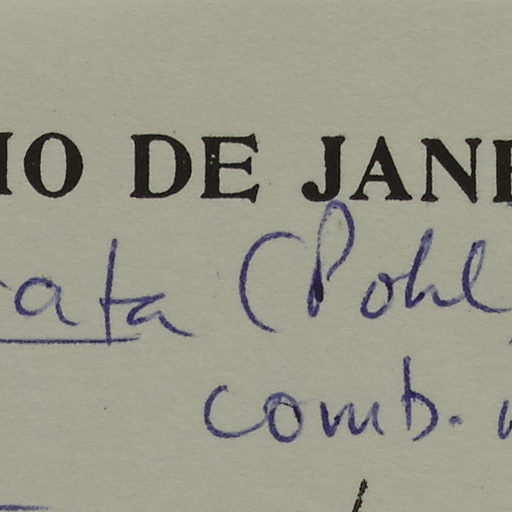 IO DE JANE
ata (Pohl
comb.